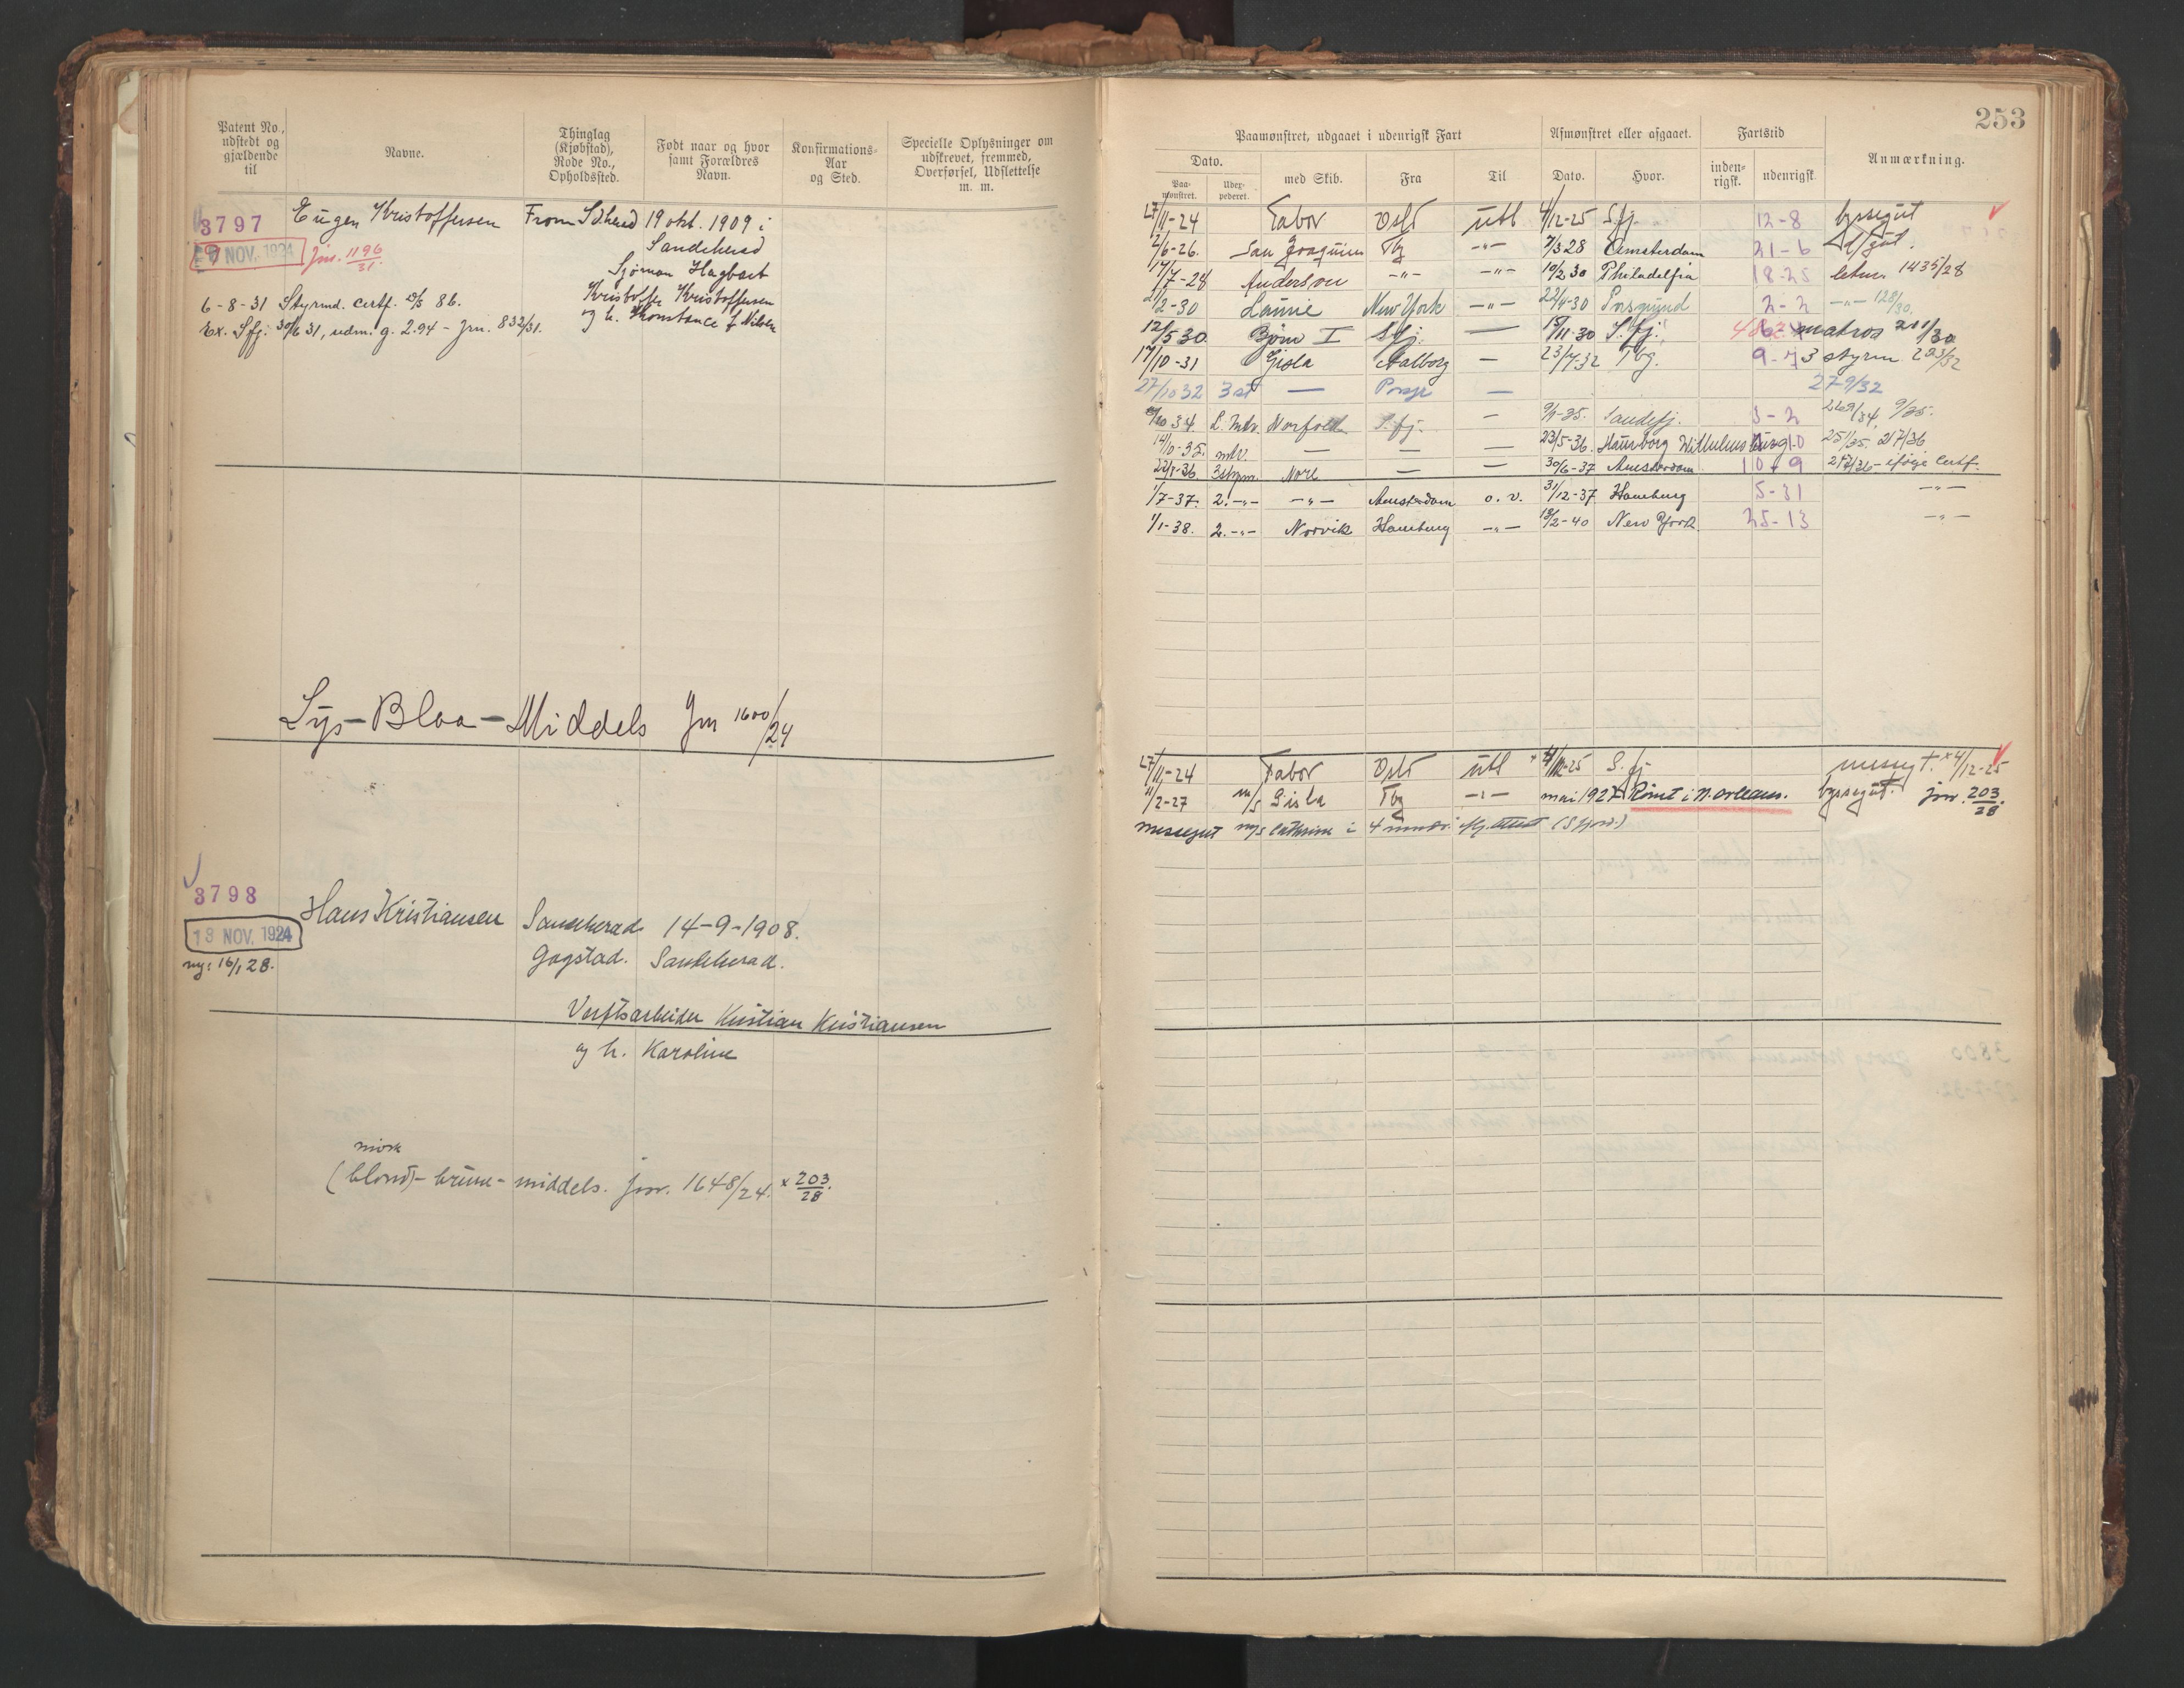 253
Patent No., udstedt og gjældende til
Navne.
Thinglag (Kjøbstad), Rode No., Opholdssted.
Født naar og hvor samt Forældres Navn.
Konfirmations-Aar og Sted.
Specielle Oplysninger om udskrevet, fremmed, Overførsel, Udslettelse m. m.
Paamønstret, udgaaet i udenrigsk Fart
Afmønstret eller afgaaet.
Fartstid
Anmærkning.
Dato.
Paamønstret.
med Skib.
Fra
Til
Dato.
Hvor.
indenrigsk.
udenrigsk.
3797 Eugen Kristoffersen From Sdherd 19 okt. 1909 i
NOV. 1924 Jnr. 1196/31
Sandeherad
Sjömann Hagbart
Kristoffer Kristoffersen
og h. Konstance f. Nilsen
6-8-31 Styrmd. certf. 86.
Ex. Sfj. 30/6 31, udm. g. 2.94 - Jrn. 832/31.
Lys-Blaa-Middels Jnr 1600/24
27/11-24 Tabor Oslo utl 4/12-25 S.fj. 12-8 byssegut
2/6-26. San Joaquim Tbg -"- 7/3 28 Amsterdam 21-6 d/gut.
17/7-28 Anderson -"- -"- 10/2 30 Philadelfia 18-25 letm. 1435/28
21/2-30 Laurie New York -"- 22/4-30 Porsgrund 2-2 -"- 128/30.
12/5 30. Bjørn I Sfj. — 15/11-30 S.fj. matros 211/30
17/10-31 Gisla Aalborg — 23/7-32 Tbg. 9-7 3 styrm 223/32
27/10 32 3 st — Porsgr — 279/32
34. Norfold S.fj. — 9/9-35. Sandefj. 3-2 9/35.
14/10-35. mtr. — — — 23/5-36. Hamborg Wilhelmsburg
22/8-36. 3 styrm. Nore — — 30/6-37 Amsterdam 10-9 ifølge Certf.
1/7-37. 2.-"- -"- Amsterdam o. v. 31/12-37 Hamburg 5-31 -"-
1/1-38. 2.-"- Norvik Hamburg -"- 13/2-40 New York. 25-13 -"-
3798 Hans Kristiansen Sandeherad 14-9-1908.
13 NOV. 1924 Gogstad. Sandeherad.
ny: 16/1 28.
Verftsarbeider Kristian Kristiansen
og h. Karoline
mörk
(blond)- brune - middels. jnr. 1648/24. x 203/28.
27/11-24 Tabor Oslo utl x 4/12-25 S.fj messegt. x 4/12-25
11/2-27 m/s Gisla Tbg -"- mai 1927 Römt i N. Orleans. byssegut. jnr. 203/28.
messegut m/s Cathrine i 4 mndr.